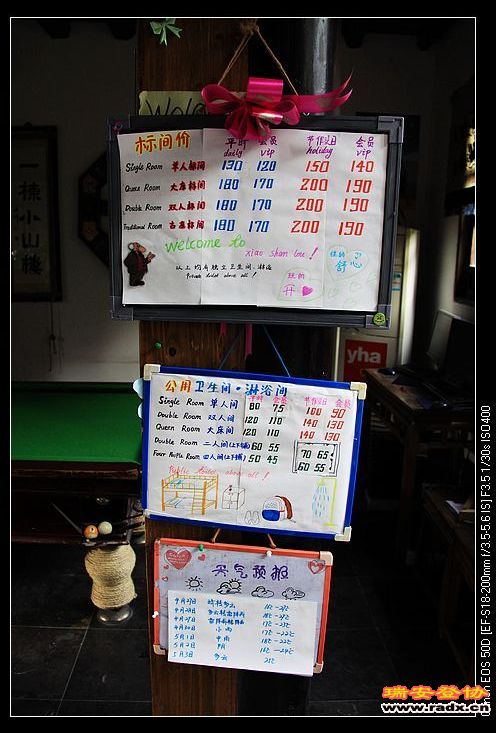 Welco
标间价 平时 会员 节假日 会员
daily vip holiday vip
Single Room 单人标间 130 120 150 140
Queen Room 大床标间 180 170 200 190
Double Room 双人标间 180 170 200 190
Traditional Room 古床标间 180 170 200 190
welcome to
xiao shan lou!
以上均有独立卫生间、淋浴
Private toilet above all!
住的舒心
玩的开
yha
公用卫生间·淋浴间
平时 会员 节假日 会员
Single Room 单人间 80 75 100 90
Double Room 双人间 120 110 140 130
Queen Room 大床间 120 110 140 130
Double Room 二人间(上下铺) 60 55 70 65
Four People Room 四人间(上下铺) 50 45 60 55
Public toilet above all!
天气预报
4月27日
4月28日
4月29日
4月30日 小雨
5月1日 中雨
5月2日 阴
5月3日 多云
一楼小山楼
瑞安登协
www.radx.cn
Canon EOS 50D |EF-S18-200mm f/3.5-5.6 IS| F3.5 1/30s ISO400